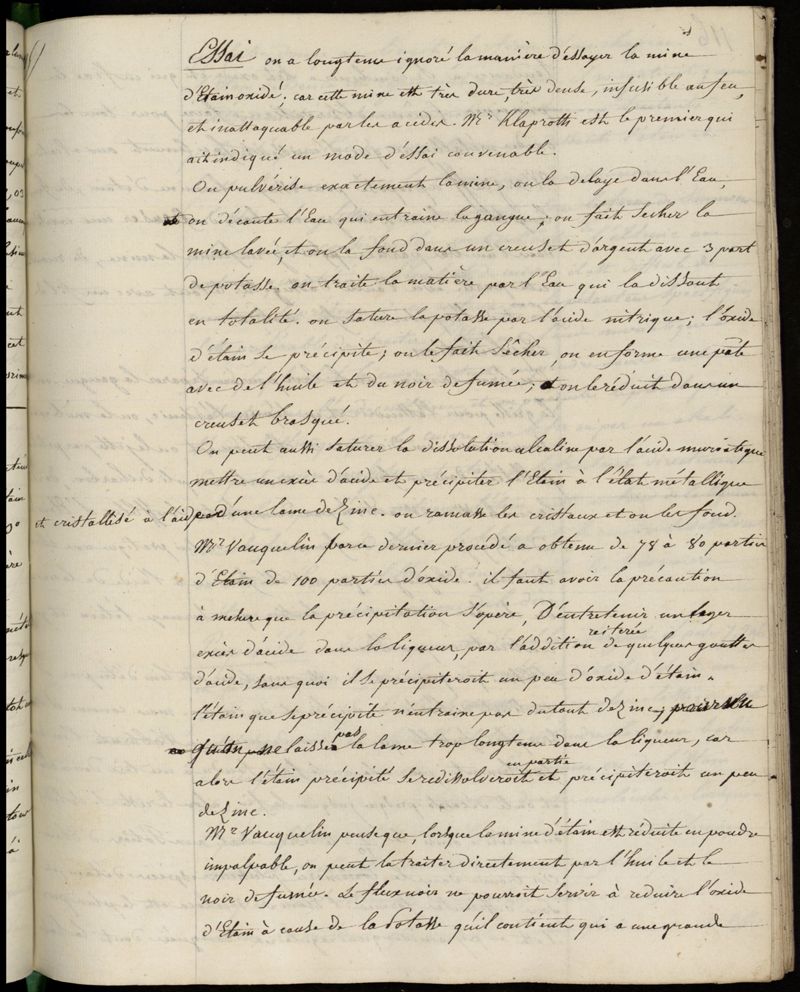 Essai on a longtems ignoré la manière d'éssayer la mine
d'Etain oxidé. car cette mine est très dure, très dense, infusible au feu,
et inattaquable par les acides. Mr. Klaproth est le premier qui
ait indiqué un mode d'éssai convenable.
On pulvérise exactement la mine, on la delaye dans l'Eau,
on décante l'Eau qui entraine la gangue; on fait sécher la
mine lavée, et on la fond dans un creuset d'argent avec 3 part
de potasse on traite la matière par l'Eau qui la dissout
en totalité. on sature la potasse par l'acide nitrique; l'oxide
d'étain se précipite; on le fait sêcher, on en forme une pâte
avec de l'huile et du noir de fumée; on le réduit dans un
creuset brasqué.
On peut aussi saturer la dissolution alcaline par l'acide muriatique
mettre un excès d'acide et précipiter l'Etain à l'état métallique
et cristallisé à l'aide d'une lame de Zinc. on ramasse les cristaux et on les fond.
Mr. Vauquelin par ce dernier procédé a obtenu de 78 à 80 parties
d'Etain de 100 parties d'oxide. il faut avoir la précaution
à mesure que la précipitation s'opère, D'entretenir un leger
excès d'acide dans la liqueur, par l'addition reiterée de quelques gouttes
d'acide, sans quoi il se précipiteroit un peu d'oxide d'étain.
l'étain que se précipite n'entraine pas du tout de Zinc;
laisse pas la lame trop longtems dans la liqueur, car
alors l'étain précipité se redissolveroit en partie et précipiteroit un peu
de Zinc.
Mr. Vauquelin pense que, lorsque la mine d'étain est réduite en poudre
impalpable, on peut la traiter directement par l'huile et le
noir de fumée. Le flux noir ne pourroit servir à reduire l'oxide
d'Etain à cause de la Potasse qu'il contient qui a une grande